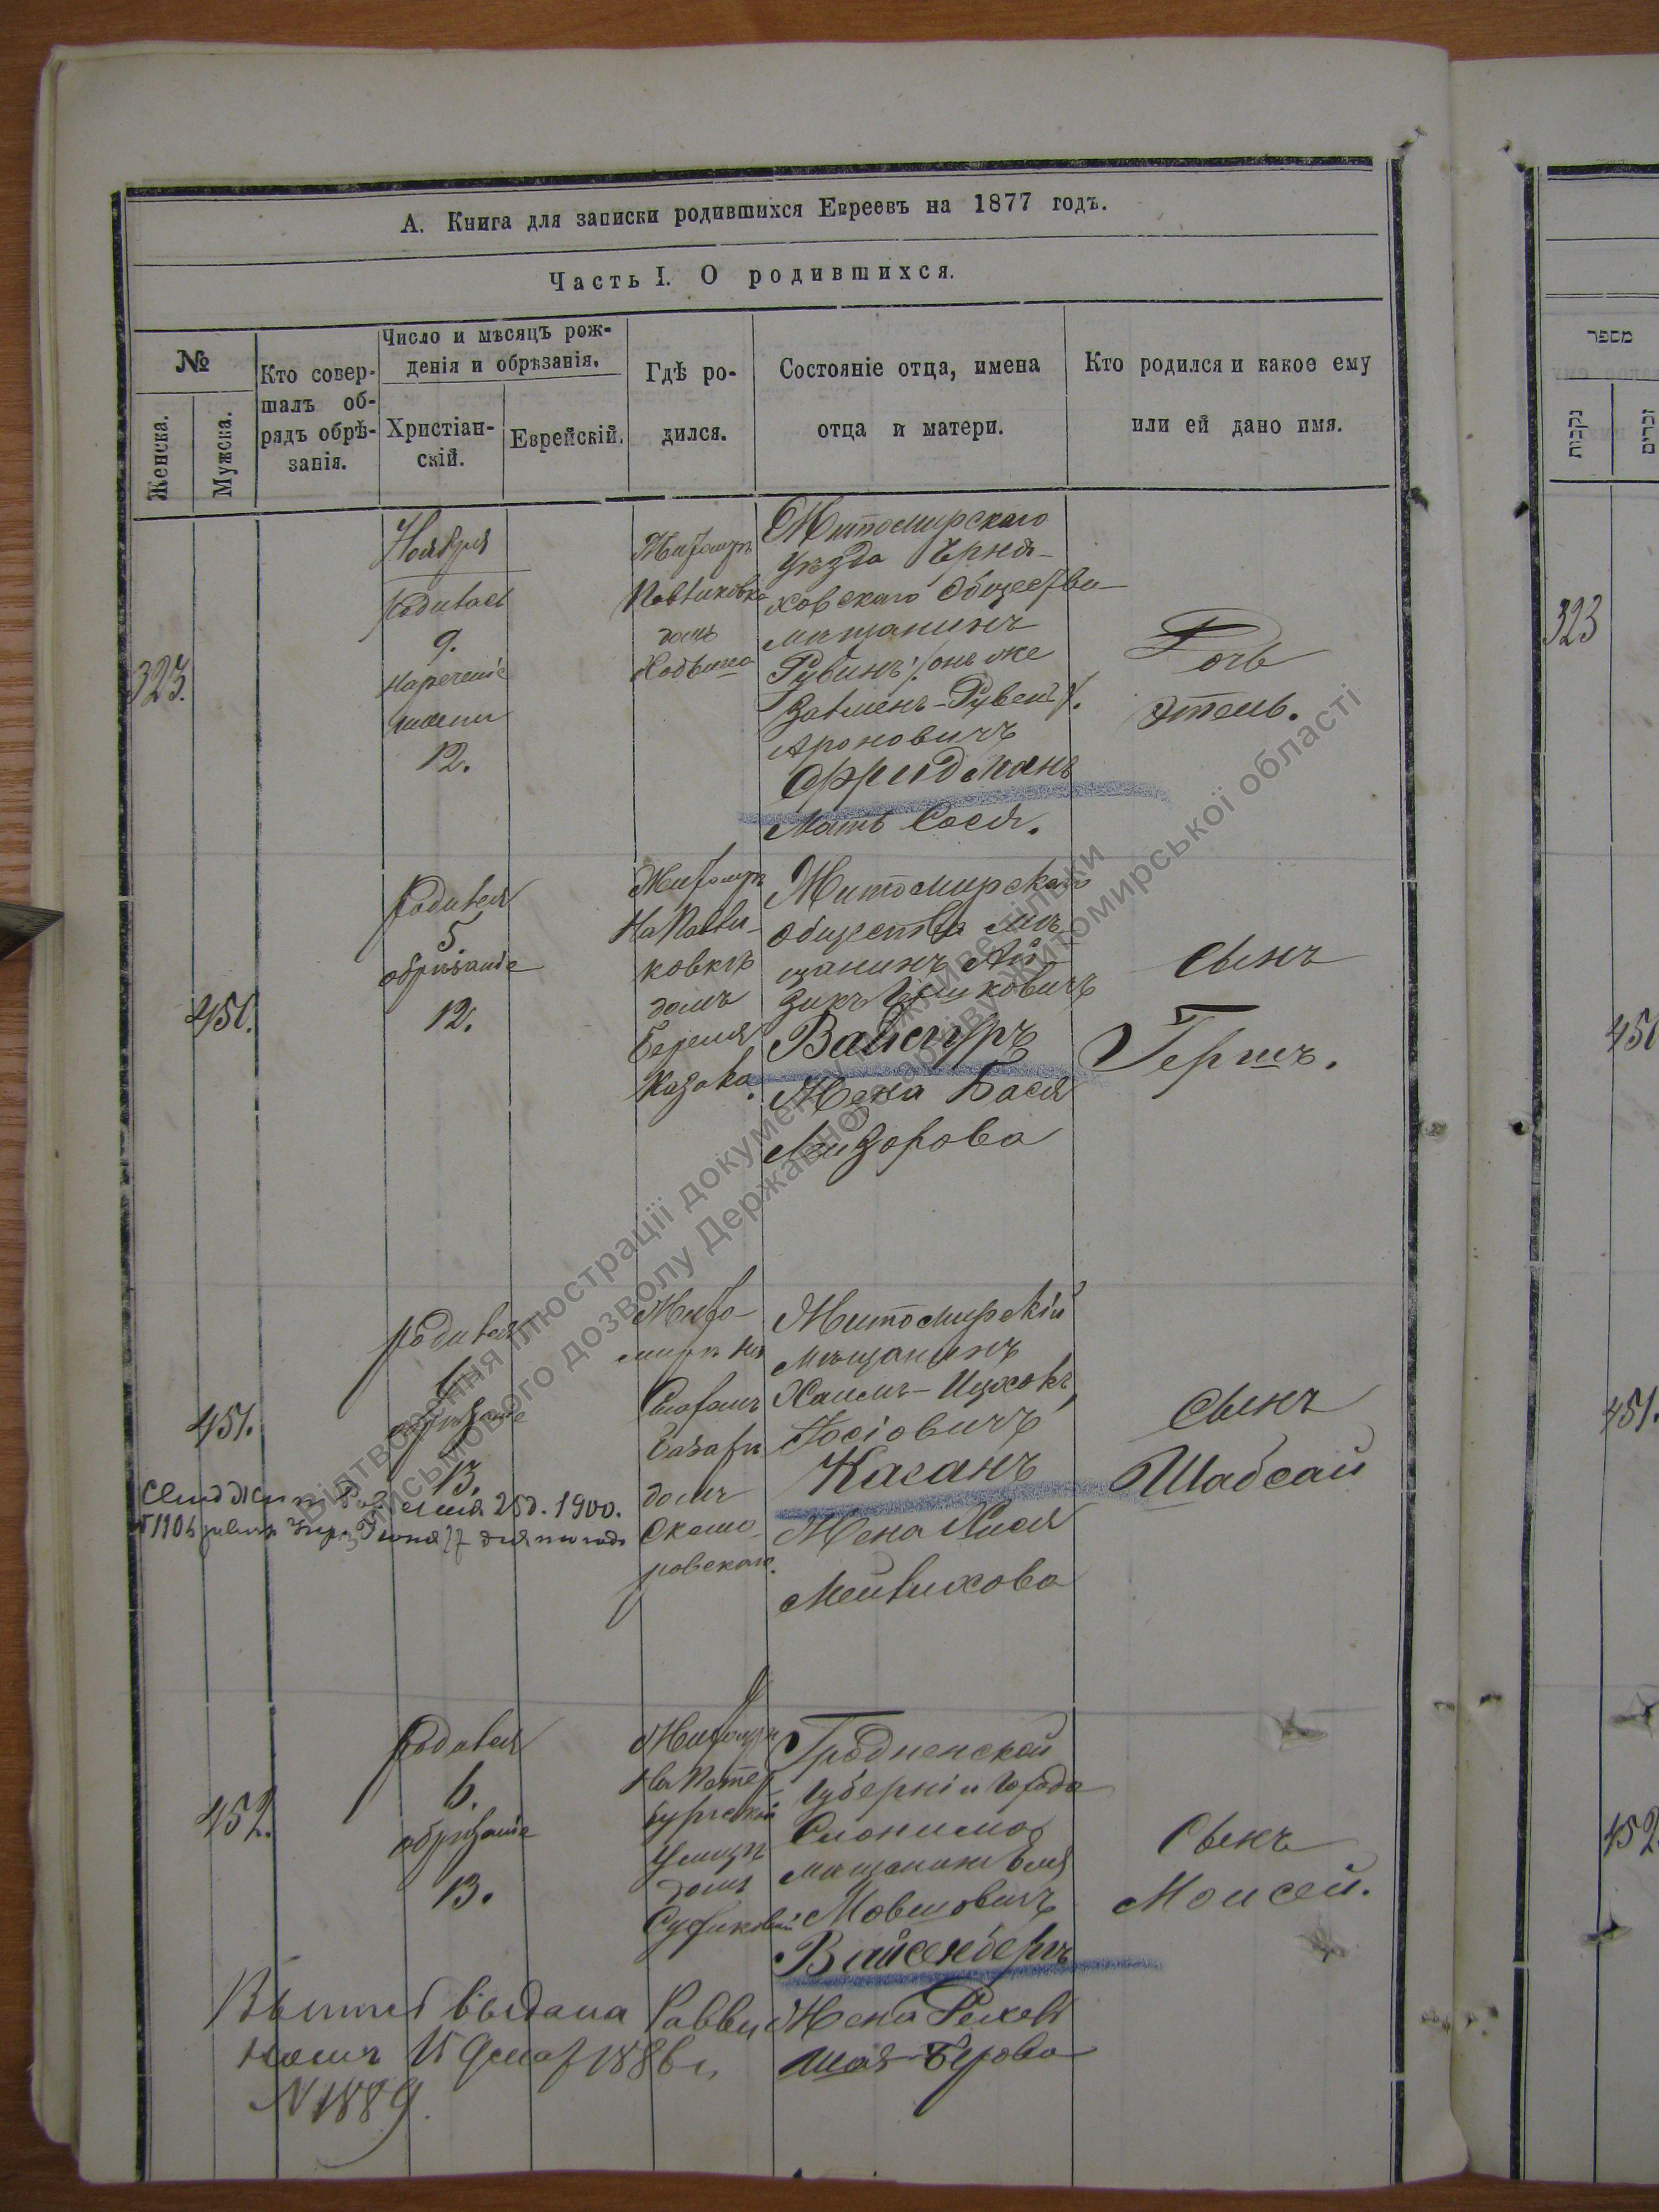 А. Книга для записки родившихся Евреевъ на 1877 годъ.
Часть I. О родившихся.
№
Женска.
Мужска.
Кто совер-
шалъ об-
рядъ обрѣ-
занія.
Число и мѣсяцъ рож-
денія и обрѣзанія.
Христіан-
скій.
Еврейскій.
Гдѣ ро-
дился.
Состояніе отца, имена
отца и матери.
Кто родился и какое ему
или ей дано имя.
323.
Ноября
Родилась
9.
Нареченіе
имени
12.
Житомиръ
домъ
Житомирскаго
уѣзда Черня-
ховскаго Общества
мѣщанинъ
Рубинъ /: онъ же
Залменъ-Рувенъ :/.
Ароновичъ
Фридманъ
Мать Сося.
Дочь
Этель.
450.
Родился
5.
обрѣзаніе
12.
Житомиръ
домъ
Казака.
Житомирскаго
общества мѣ-
щанинъ Ай-
зикъ
Вайсгуръ
Жена Бася
Лейзорова
Сынъ
Гершъ.
451.
Родился
6.
обрѣзаніе
13.
Жито-
миръ на
домъ
Житомирскій
мѣщанинъ
Хаимъ-Ицхокъ
Іосіовичъ
Каганъ
Жена Хися
Мейлихова
Сынъ
Шабсай
25 д. 1900.
452.
Родился
6.
обрѣзаніе
13.
Житомиръ
на Петер-
бургской
улицѣ
домъ
Гродненской
губерніи города
Слонима
мѣщанинъ Еля
Мовшовичъ
Вайсенбергъ
Жена Рехель
Шая-Берова
Сынъ
Моисей.
выдана Равви-
номъ 15 1886 г.
N 1889.
מספר
נקבות
זכרים
323
450
451.
452
Відтворення ілюстрації документу можливе тільки
з письмового дозволу Державного архіву Житомирської області